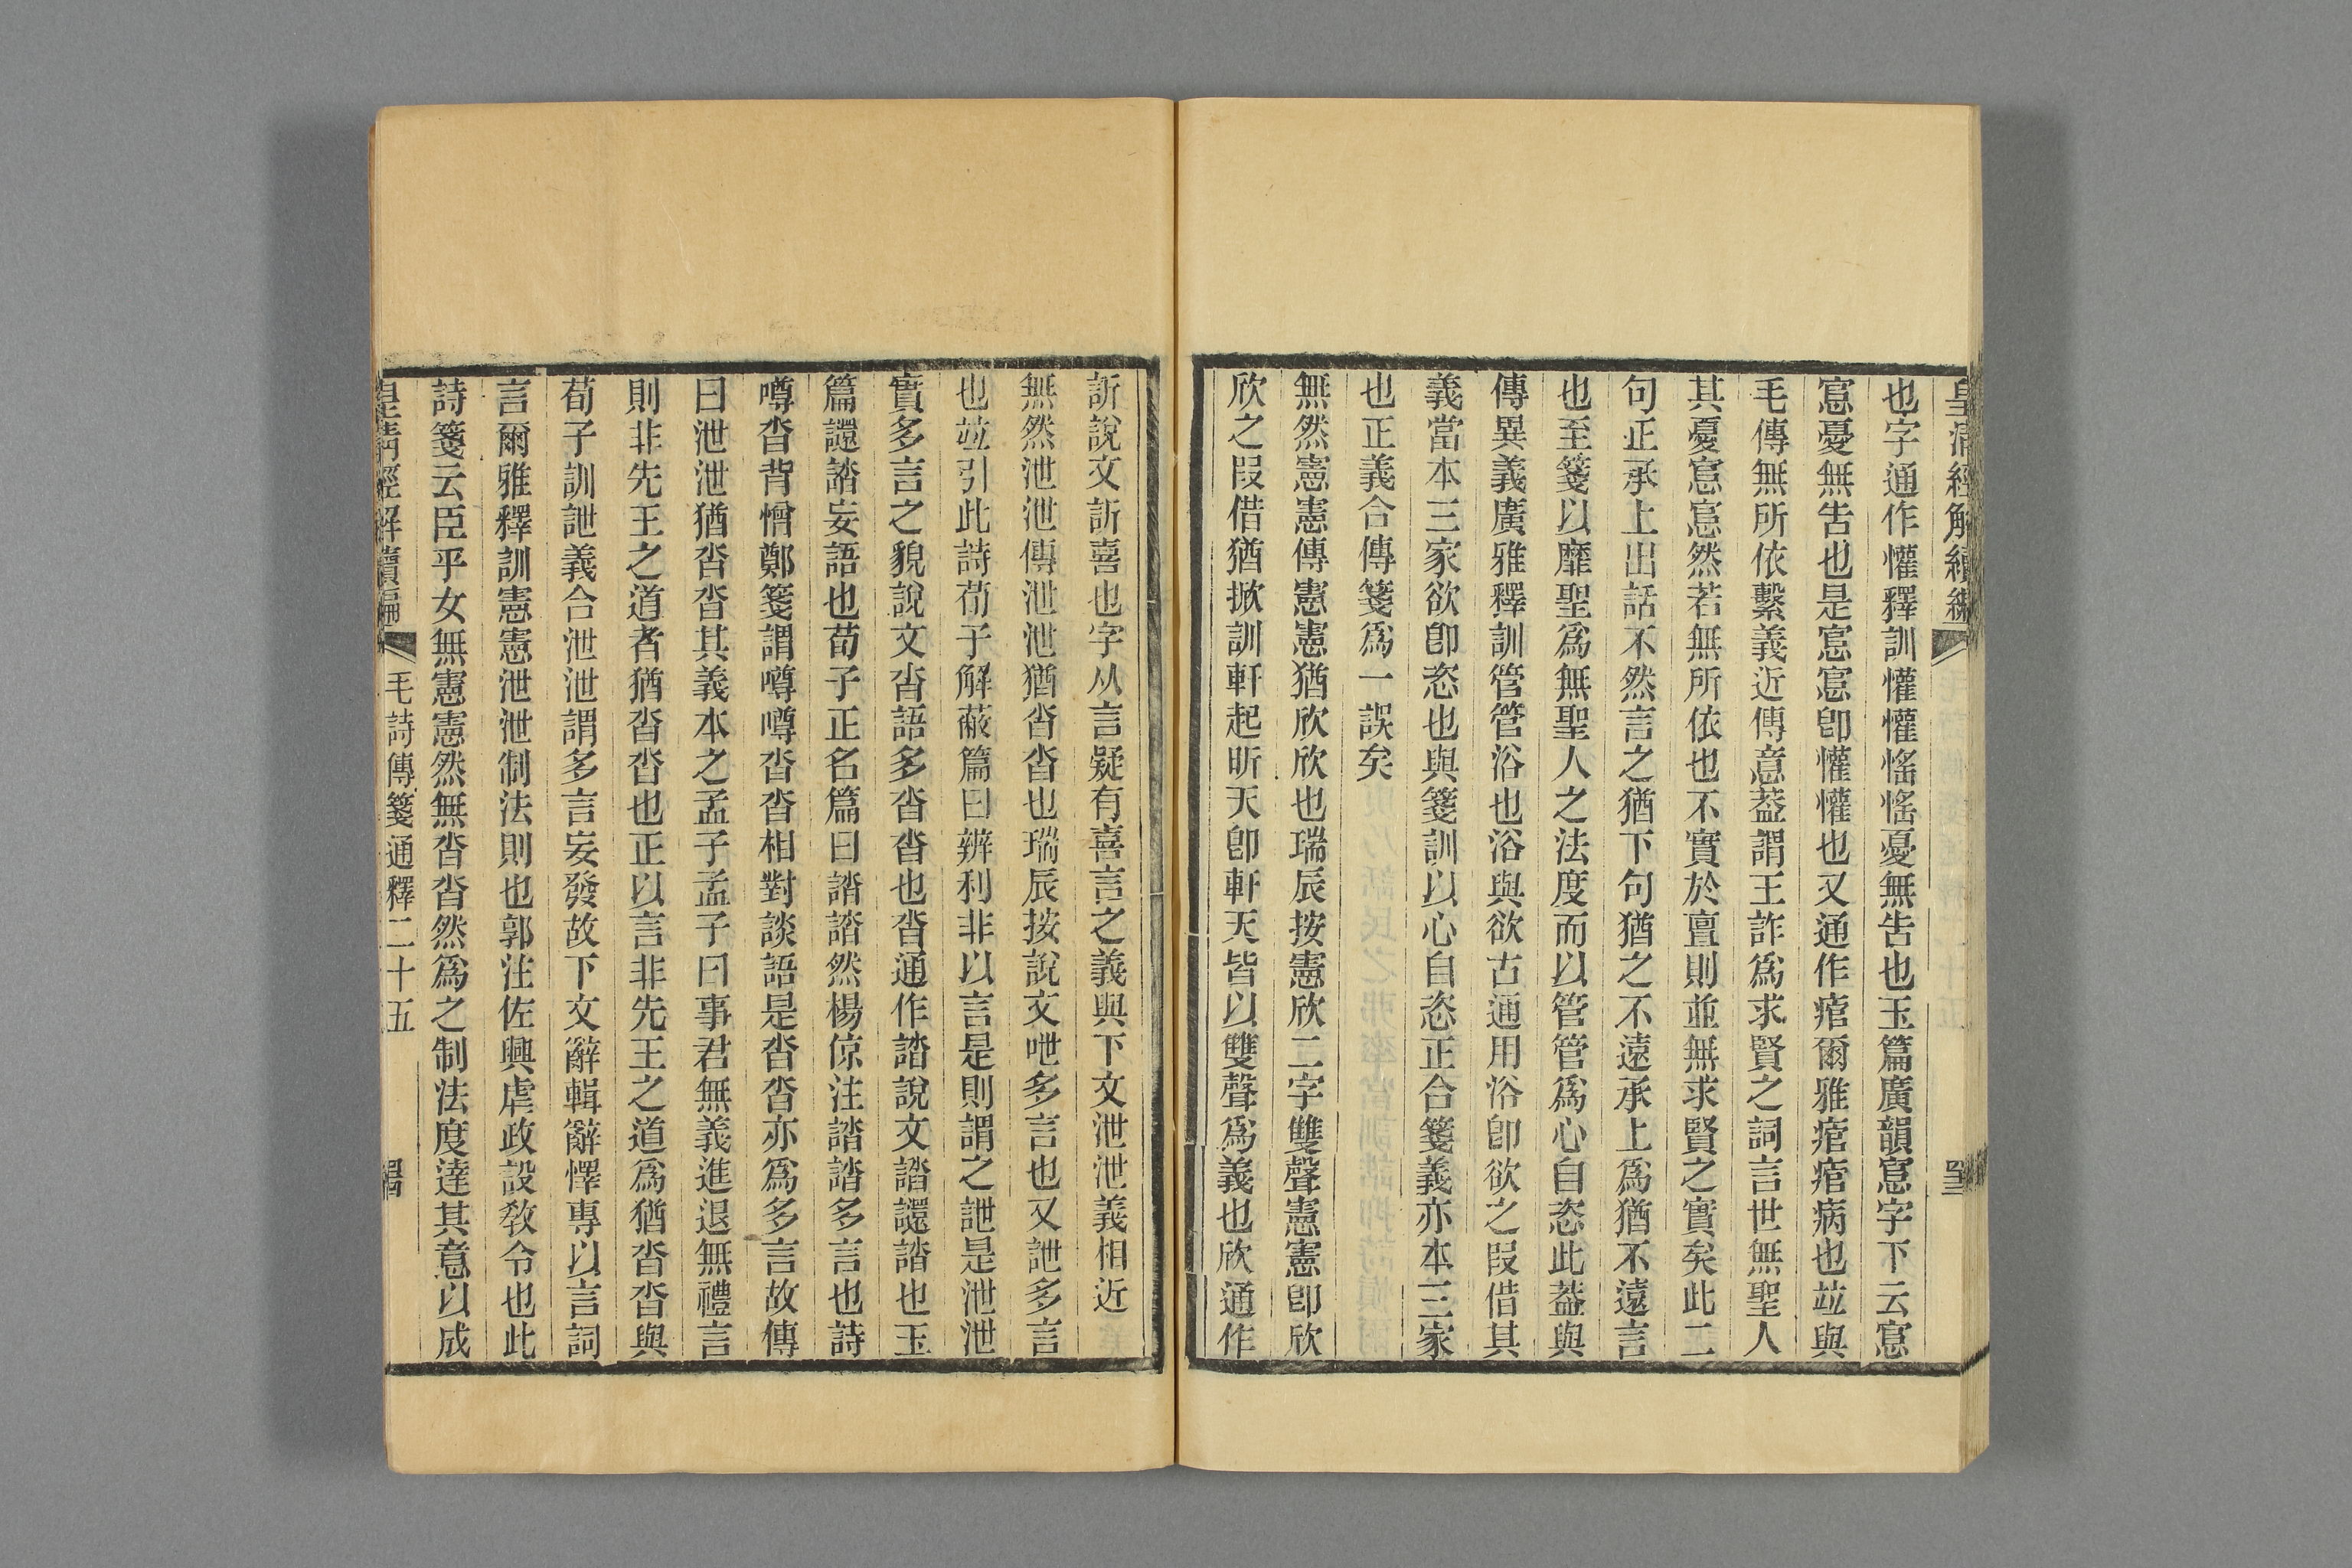 皇清經解續編
也字通作懽釋訓懽懽愮愮憂無告也玉篇廣韻悹字下云悹
悹憂無告也是悹悹卽懽懽也又通作痯爾雅痯痯病也竝與
毛傳無所依繫義近傳意葢謂王詐爲求賢之詞言世無聖人
其憂悹悹然若無所依也不實於亶則並無求賢之實矣此二
句正承上出話不然言之猶下句猶之不遠承上爲猶不遠言
也至箋以靡聖爲無聖人之法度而以管管爲心自恣此葢與
傳異義廣雅釋訓管管浴也浴與欲古通用浴卽欲之叚借其
義當本三家欲卽恣也與箋訓以心自恣正合箋義亦本三家
也正義合傳箋爲一誤矣
無然憲憲傳憲憲猶欣欣也瑞辰按憲欣二字雙聲憲憲卽欣
欣之叚借猶掀訓軒起昕天卽軒天皆以雙聲爲義也欣通作
訢說文訢喜也字从言疑有喜言之義與下文泄泄義相近
無然泄泄傳泄泄猶沓沓也瑞辰按說文呭多言也又詍多言
也竝引此詩荀子解蔽篇曰辨利非以言是則謂之詍是泄泄
實多言之貌說文沓語多沓沓也沓通作誻說文誻䜚誻也玉
篇䜚誻妄語也荀子正名篇曰誻誻然楊倞注誻誻多言也詩
噂沓背憎鄭箋謂噂噂沓沓相對談語是沓沓亦爲多言故傳
曰泄泄猶沓沓其義本之孟子孟子曰事君無義進退無禮言
則非先王之道者猶沓沓也正以言非先王之道爲猶沓沓與
荀子訓詍義合泄泄謂多言妄發故下文辭輯辭懌專以言詞
言爾雅釋訓憲憲泄泄制法則也郭注佐興虐政設敎令也此
詩箋云臣乎女無憲憲然無沓沓然爲之制法度達其意以成
皇淸經解續編 毛詩傳箋通釋二十五